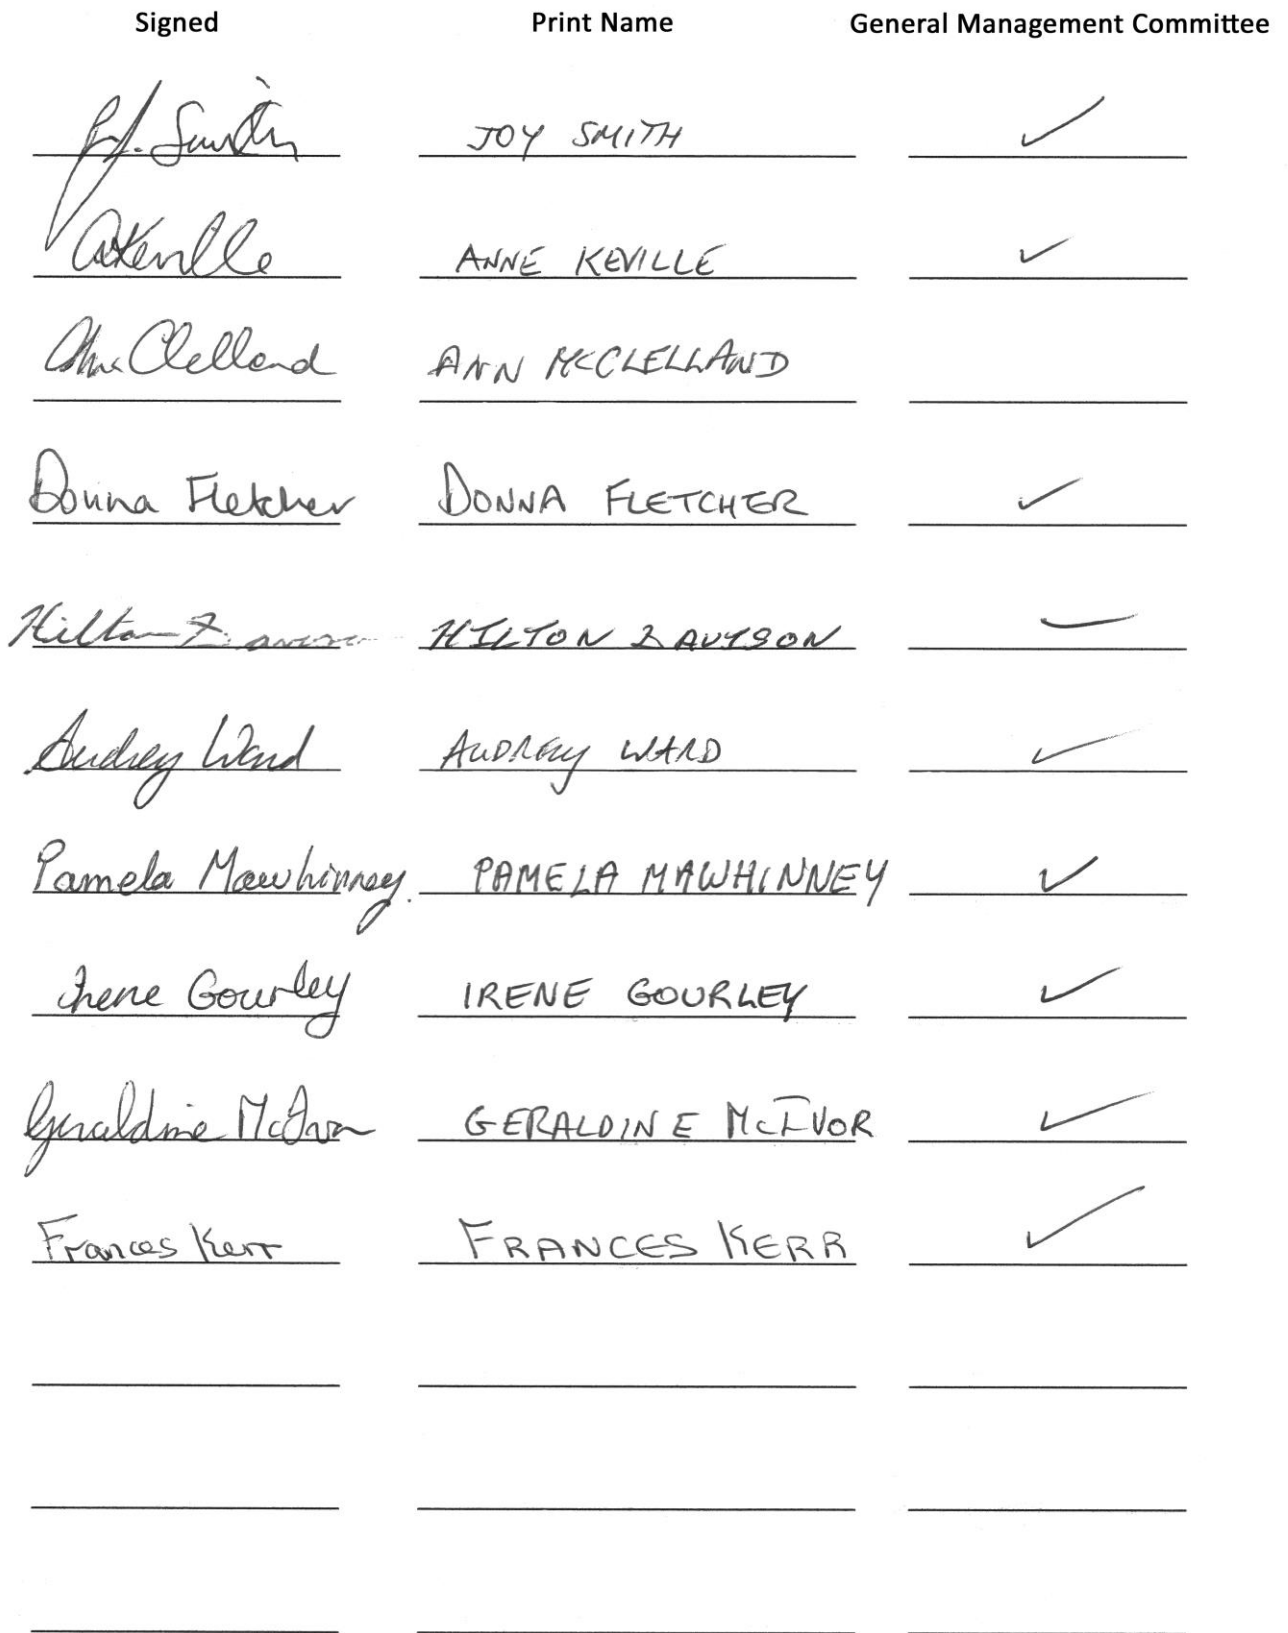 Signed Print Name General Management Committee
J. Smith JOY SMITH ✓
AKeville ANNE KEVILLE ✓
AMcClelland ANN MCCLELLAND
Donna Fletcher DONNA FLETCHER ✓
Hilton HILTON DAVISON
Audrey Ward AUDREY WARD ✓
Pamela Mawhinney. PAMELA MAWHINNEY ✓
Irene Gourley IRENE GOURLEY ✓
Geraldine McIvor GERALDINE McIVOR ✓
Frances Kerr FRANCES KERR ✓